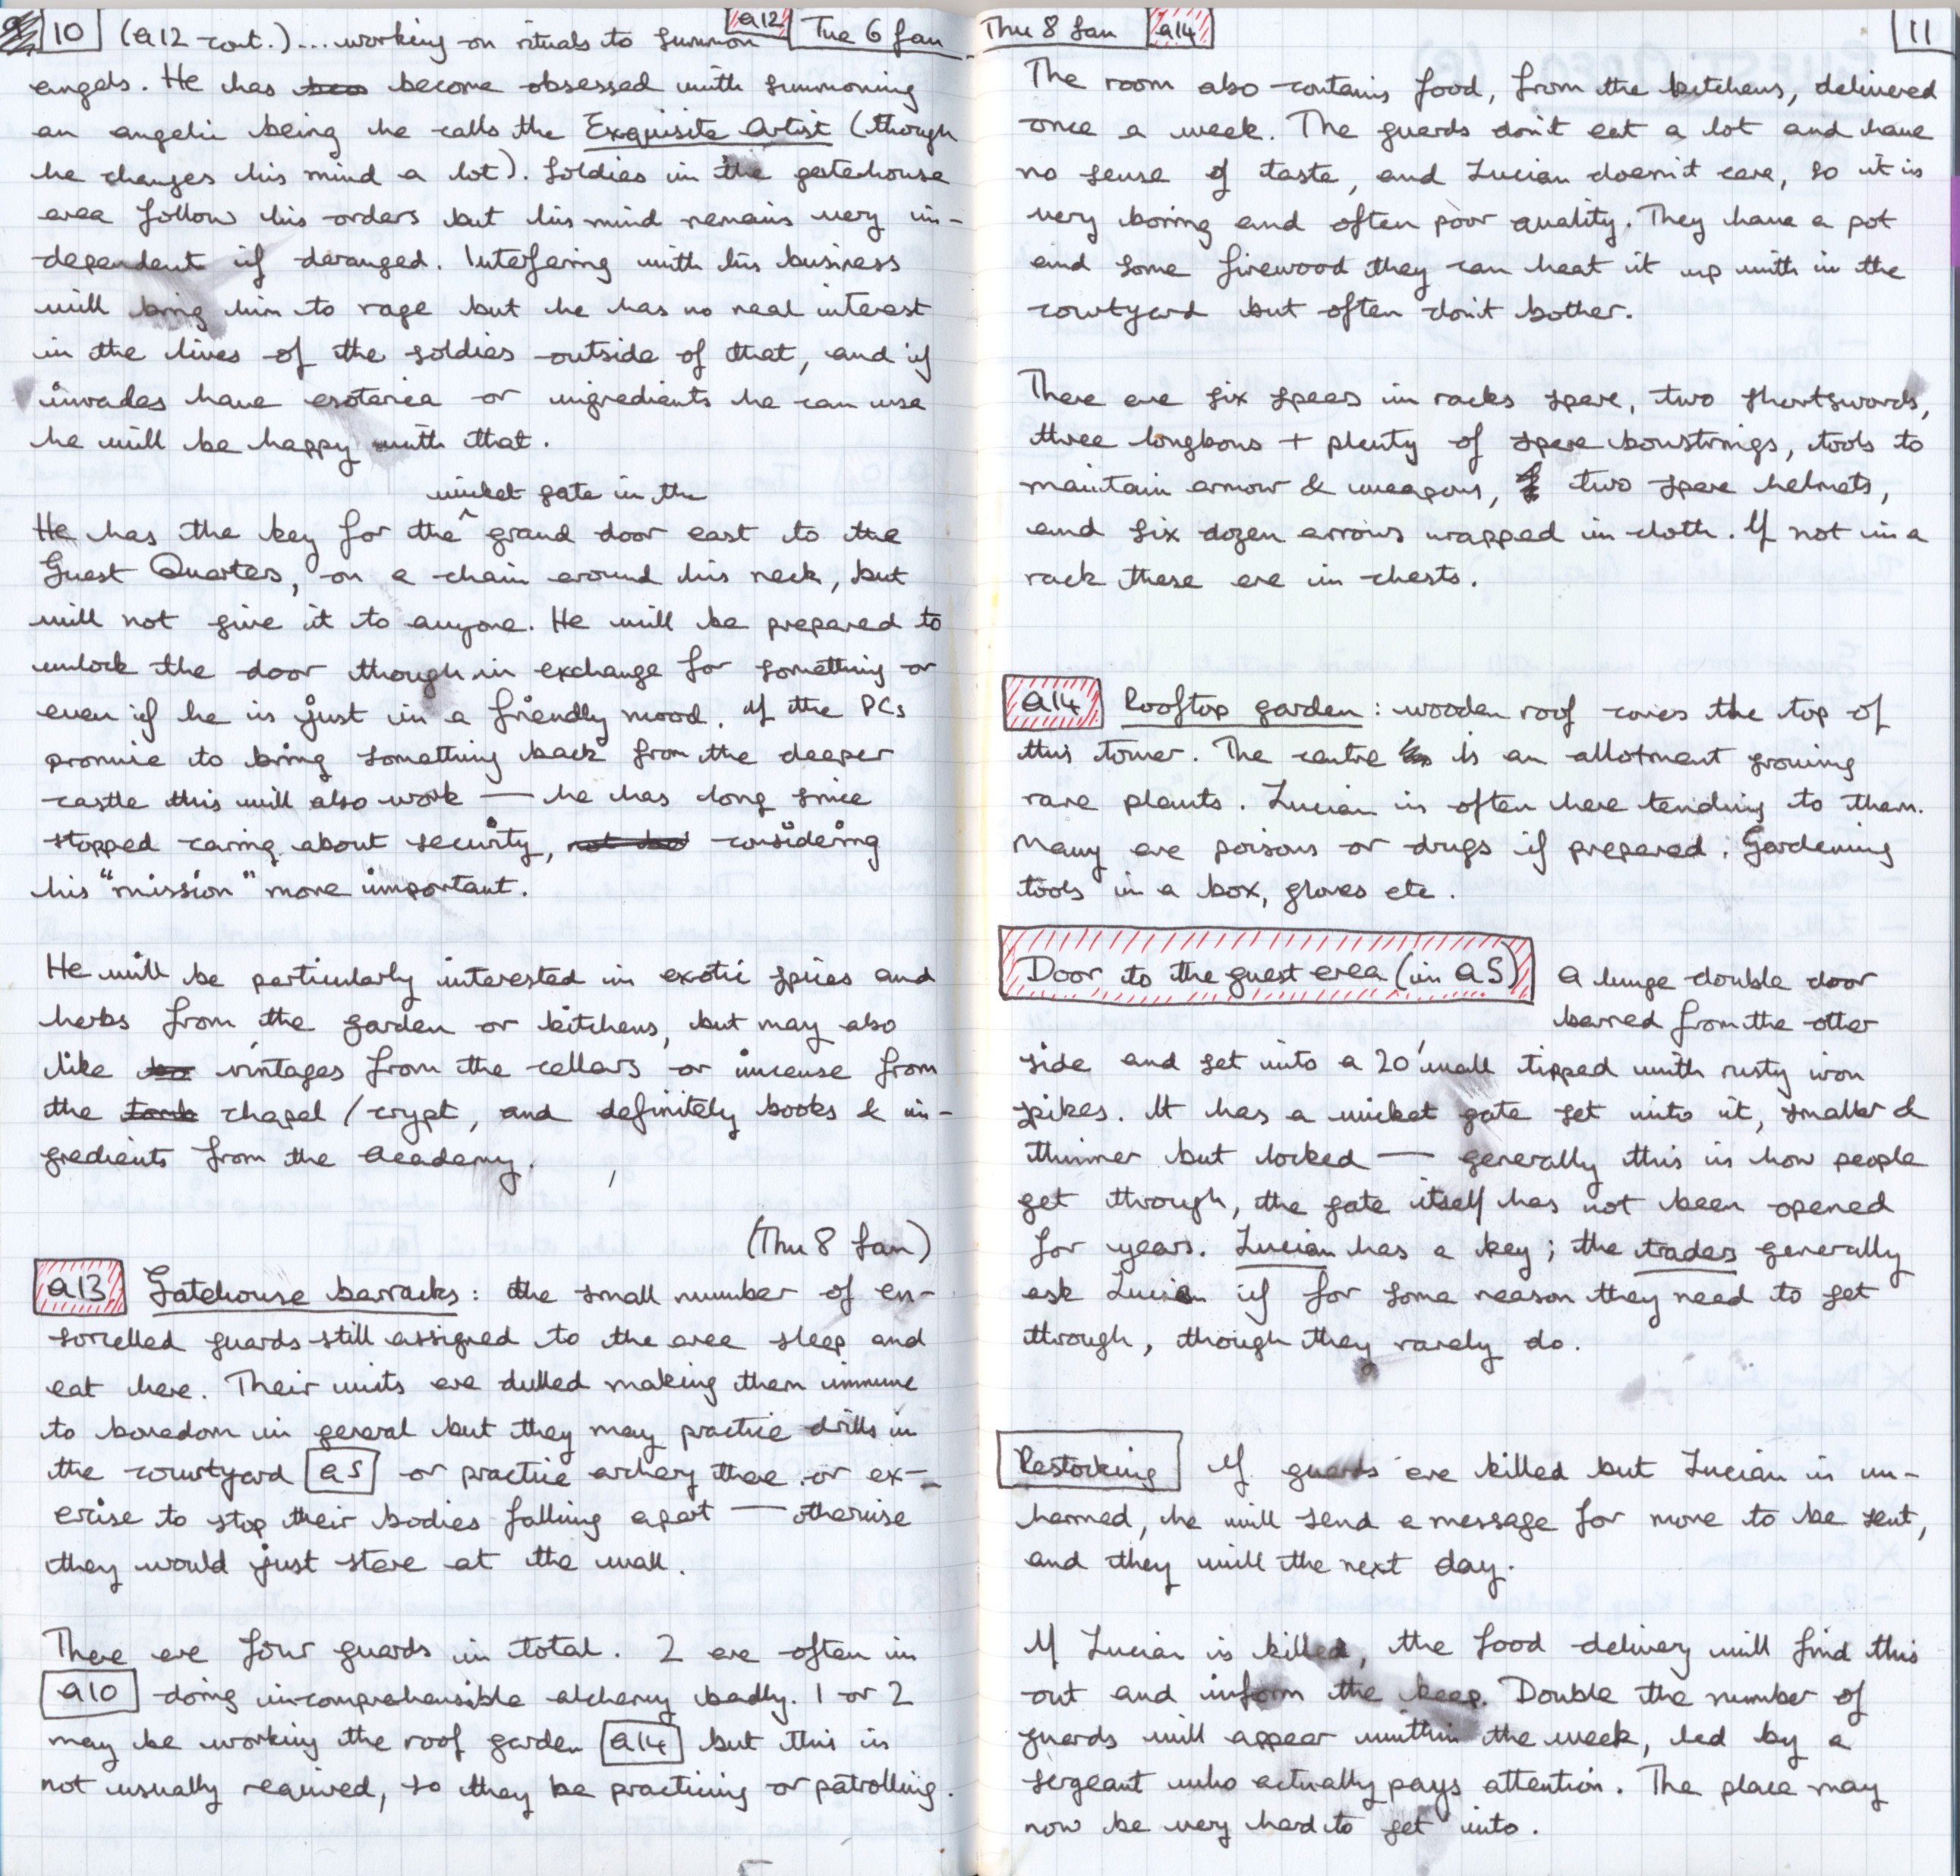 10 (A12 cont.)... working on rituals to summon A12 Tue 6 Jan
angels. He has become obsessed with summoning
an angelic being he calls the Exquisite Artist (though
he changes his mind a lot). Soldiers in the gatehouse
area follow his orders but his mind remains very in-
dependent if deranged. Interfering with his business
will bring him to rage but he has no real interest
in the lives of the soldiers outside of that, and if
invaders have esoterica or ingredients he can use
he will be happy with that.
wicket gate in the
He has the key for the ^ grand door east to the
Guest Quarters, on a chain around his neck, but
will not give it to anyone. He will be prepared to
unlock the door though in exchange for something or
even if he is just in a friendly mood. If the PCs
promise to bring something back from the deeper
castle this will also work — he has long since
stopped caring about security, considering
his "mission" more important.
He will be particularly interested in exotic spices and
herbs from the garden or kitchens, but may also
like vintages from the cellars or incense from
the chapel / crypt, and definitely books & in-
gredients from the Academy.
(Thu 8 Jan)
A13 Gatehouse barracks: the small number of en-
sorcelled guards still assigned to the area sleep and
eat here. Their wits are dulled making them immune
to boredom in general but they may practice drills in
the courtyard A5 or practice archery there or ex-
ercise to stop their bodies falling apart — otherwise
they would just stare at the wall.
There are four guards in total. 2 are often in
A10 doing incomprehensible alchemy badly. 1 or 2
may be working the roof garden A14 but this is
not usually required, so they be practicing or patrolling.
Thu 8 Jan A14 11
The room also contains food, from the kitchens, delivered
once a week. The guards don't eat a lot and have
no sense of taste, and Lucian doesn't care, so it is
very boring and often poor quality. They have a pot
and some firewood they can heat it up with in the
courtyard but often don't bother.
There are six spears in racks spare, two shortswords,
three longbows + plenty of spare bowstrings, tools to
maintain armour & weapons, two spare helmets,
and six dozen arrows wrapped in cloth. If not in a
rack these are in chests.
A14 Rooftop garden: wooden roof covers the top of
this tower. The centre is an allotment growing
rare plants. Lucian is often here tending to them.
Many are poisons or drugs if prepared. Gardening
tools in a box, gloves etc.
Door to the guest area (in A5) A huge double door
barred from the other
side and set into a 20' wall tipped with rusty iron
spikes. It has a wicket gate set into it, smaller &
thinner but locked — generally this is how people
get through, the gate itself has not been opened
for years. Lucian has a key; the traders generally
ask Lucian if for some reason they need to get
through, though they rarely do.
Restocking If guards are killed but Lucian is un-
harmed, he will send a message for more to be sent,
and they will the next day.
If Lucian is killed, the food delivery will find this
out and inform the keep. Double the number of
guards will appear within the week, led by a
sergeant who actually pays attention. The place may
now be very hard to get into.